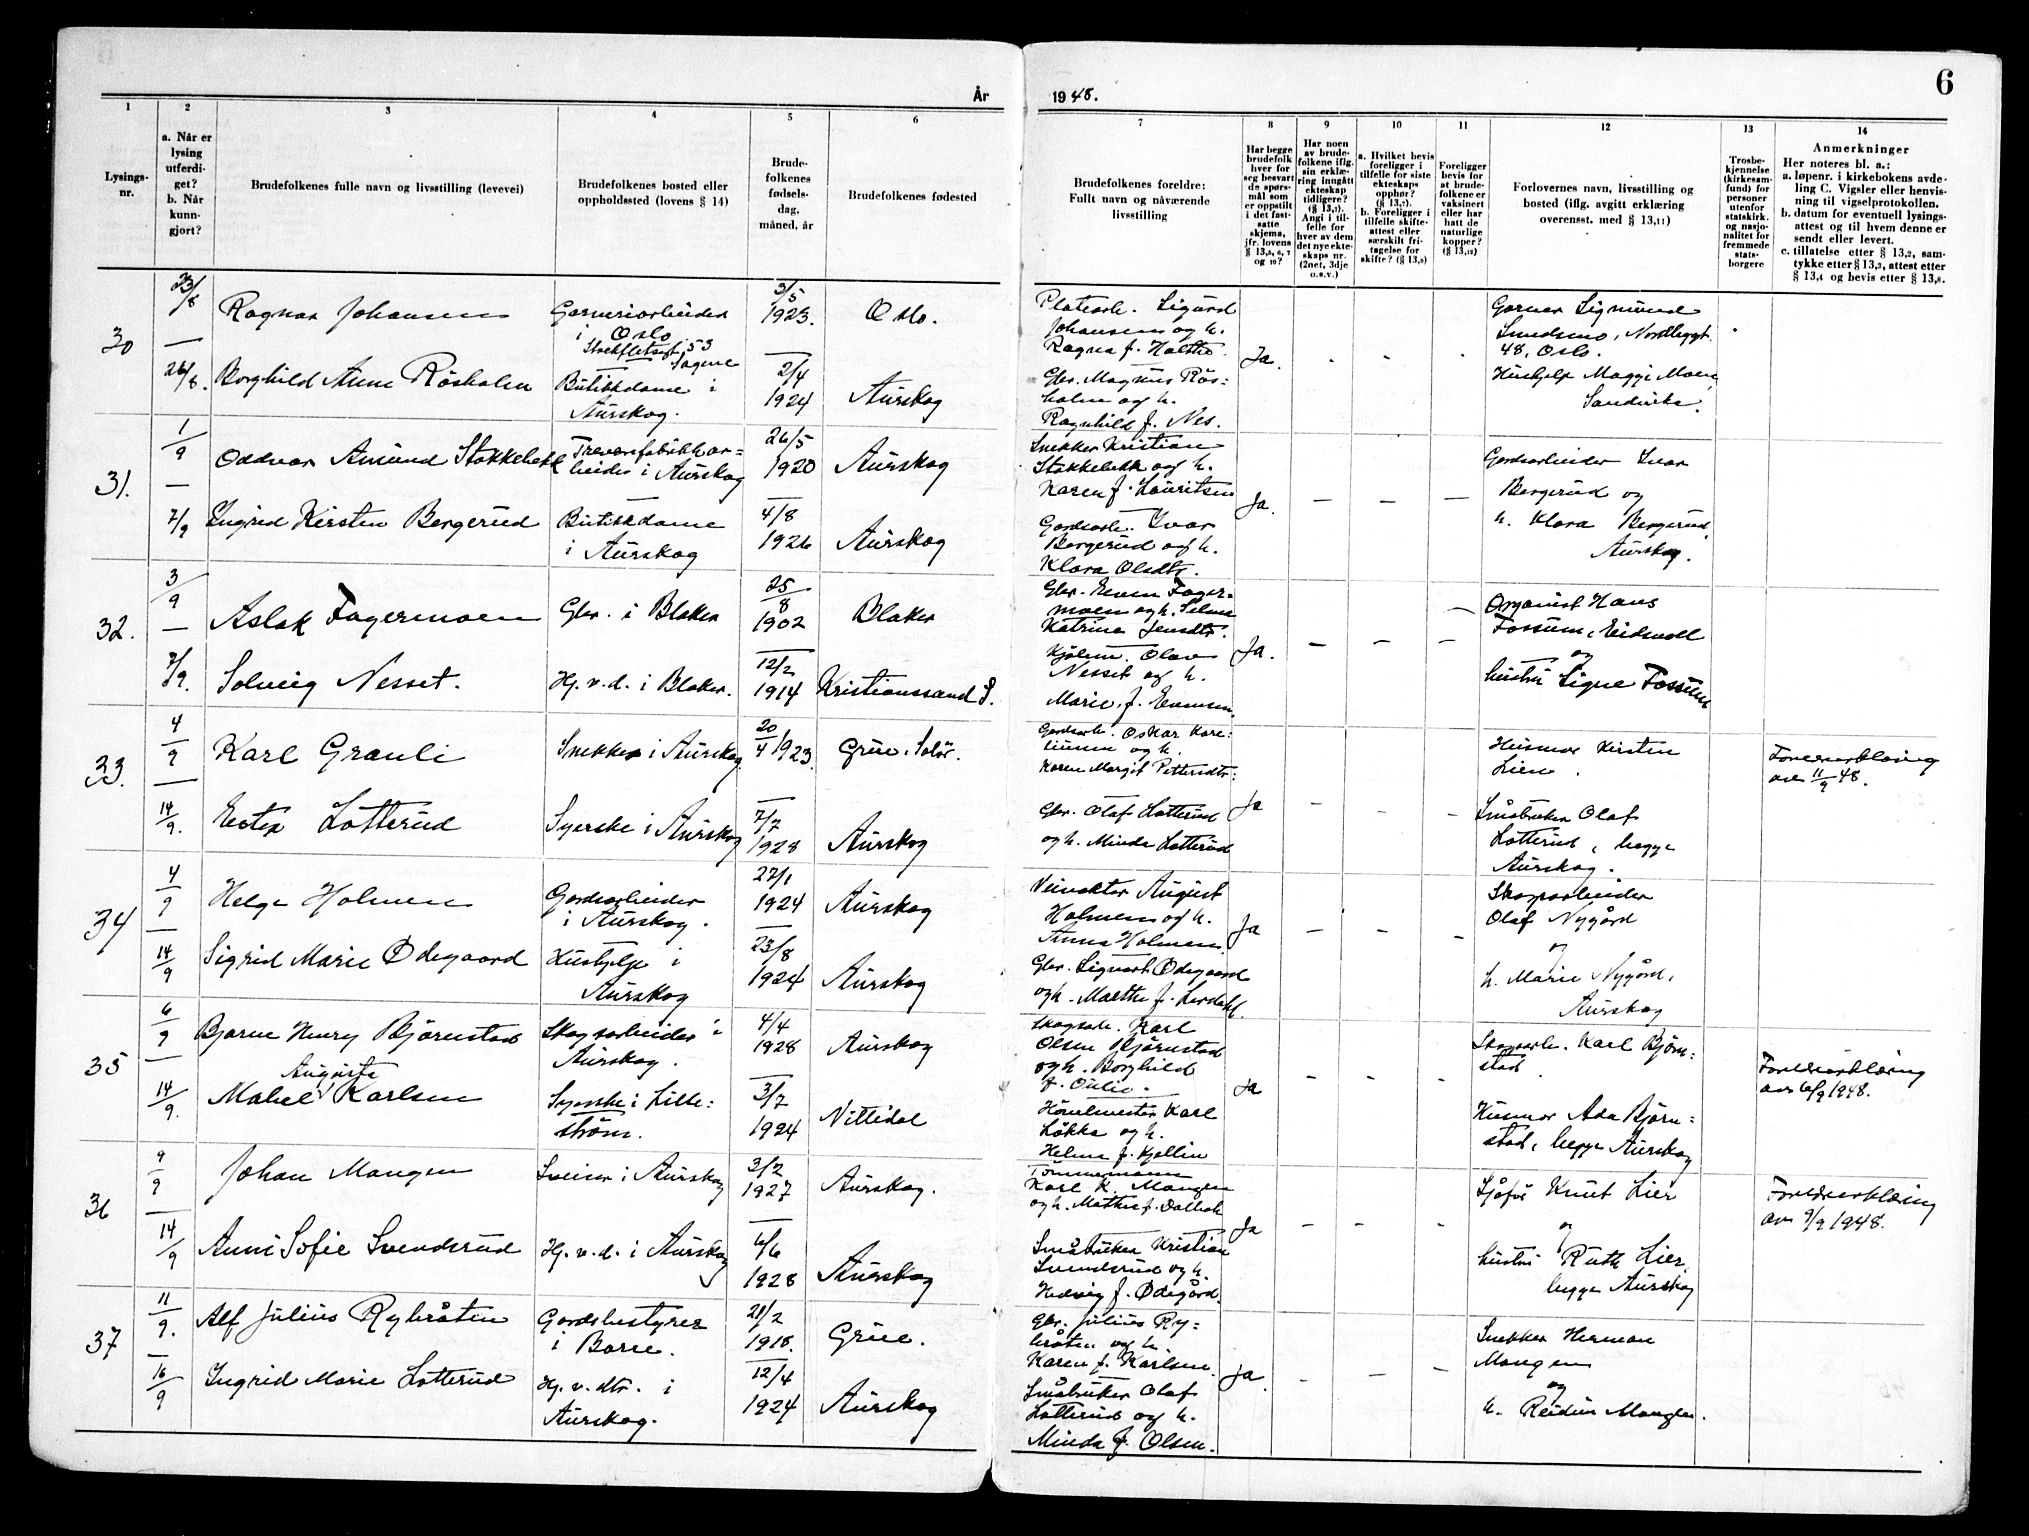 6
År
1948.
1
2
3
4
5
6
7
8
9
10
11
12
13
14
Lysings-
nr.
a. Når er
lysing
utferdi-
get?
b. Når
kunn-
gjort?
Brudefolkenes fulle navn og livsstilling (levevei)
Brudefolkenes bosted eller
oppholdssted (lovens § 14)
Brude-
folkenes
fødsels-
dag,
måned, år
Brudefolkenes fødested
Brudefolkenes foreldre:
Fullt navn og nåværende
livsstilling
Har begge
brudefolk
i hver for
seg besvart
de spørs-
mål som
er oppstilt
i det fast-
satte
skjema,
jfr. lovens
Har noen
av brude-
folkene iflg.
sin erklæ-
ring inngått
ekteskap
tidligere?
(§ 13,7).
Angi i til-
felle for
hver av dem
det nye ekte-
skaps nr.
(2net, 3dje
o.s.v.)
a. Hvilket bevis
foreligger i
tilfelle for siste
ekteskaps
opphør?
(§ 13,7).
b. Foreligger i
tilfelle skifte-
attest eller
særskilt fri-
tagelse for
skifte? (§ 13,9)
Foreligger
bevis for
at brude-
folkene er
vaksinert
eller har
hatt de
naturlige
kopper?
Forlovernes navn, livsstilling og
bosted (iflg. avgitt erklæring
overensst. med § 13,11)
Trosbe-
kjennelse
(kirkesam-
fund) for
personer
utenfor
statskirk.
og nasjo-
nalitet for
fremmede
stats-
borgere
Anmerkninger
Her noteres bl. a.:
a. løpenr. i kirkebokens avde-
ling C. Vigsler eller henvis-
ning til vigselprotokollen.
b. datum for eventuell lysings-
attest og til hvem denne er
sendt eller levert.
c. tillatelse etter § 13,2, sam-
tykke etter § 13,3, attest etter
§ 13,4 og bevis etter § 13,8.
30
23/8
26/8.
Ragnar Johansen
Gartneriarbeider
i Oslo
53
Sagene
3/5
1923.
Oslo.
Platearb. Sigurd
Johansen og h.
Ragna f. Holthe.
Ja.
Gartner Sigmund
48, Oslo.
Borghild Anne Rösholm
Butikkdame i
Aurskog.
2/4
1924
Aurskog
Gbr. Magnus Rös-
holm og h.
Ragnhild f. Nes.
Hushjelp Maggi Moen
Sandvika.
31.
1/9
7/9
Oddvar Amund Stokkebekk
Trevarefabrikkar-
beider i Aurskog
26/5
1920
Aurskog
Snekker Kristian
Stokkebekk og h.
Karen f. Lauritsen
Ja.
Gardsarbeider Ivar
Bergerud og
h. Klara Bergerud,
Aurskog.
Ingrid Kirsten Bergerud
Butikkdame
i Aurskog
4/8
1926
Aurskog
Gardsarb. Ivar
Bergerud og h.
Klara Olsdtr.
32.
3/9
7/9.
Aslak Fagermoen
Gbr. i Blaker
25/8
1902
Blaker
Gbr. Even Fager-
moen og h. Selma
Katrine Jensdtr.
Ja.
Organist Hans
Fossum, Eidsvoll
og
hustru Signe Fossum
Solveig Nesset.
Hj.v.d. i Blaker.
12/2
1914
Kristianssand S.
Olav
Nesset og h.
Marie, f. Evensen.
33.
4/9
14/9.
Karl Grauli
Snekker i Aurskog.
20/4 1923
Grue, Solør.
Gardsarb. Oskar Kare-
liussen og h.
Karen Margit Pettersdtr.
Ja
Husmor Kirsten
Lien.
Foreldreerklæring
av 11/9 48.
Ester Lotterud
Syerske i Aurskog
7/7
1928
Aurskog
Gbr. Olaf Lotterud
og h. Minda Lotterud
Småbruker Olaf
Lotterud, begge
Aurskog.
34
4/9
14/9
Helge Holmen
Gardsarbeider
i Aurskog.
27/1
1924
Aurskog
Veivokter August
Holmen og h.
Anna Holmen.
Ja
Skogsarbeider
Olaf Nygård
og
h. Marie Nygård,
Aurskog
Sigrid Marie Ødegaard
Hushjelp i
Aurskog
23/8
1924
Aurskog
Gbr. Sigvart Ødegaard
og h. Marthe f. Lierdahl.
35
6/9
14/9.
Bjarne Henry Bjørnstad
Skogsarbeider i
Aurskog.
4/4
1928
Aurskog
Skogsarb. Karl
Olsen Bjørnstad
og h. Borghild
f. Oulie.
Ja
Skogsarb. Karl Bjørn-
stad
Foreldreerklæring
av 6/9 1948.
Augusta
Mabel Karlsen
Syerske i Lille-
strøm.
3/7
1924
Nittedal
Karl
Løkka og h.
Helma f. Kjellin
Husmor Ada Bjørn-
stad, begge Aurskog
36
9/9
14/9
Johan Mangen
Sveiser i Aurskog
3/2
1927
Aurskog.
Tømmermann
Karl K. Mangen
og h. Mathea f. Dalbak
Ja
Sjåfør Knut Lier
og
hustru Ruth Lier,
begge Aurskog
Foreldreerklæring
av 9/9 1948.
Anni Sofie Svendsrud
Hj.v.d. i Aurskog
6/6
1928
Aurskog
Småbruker Kristian
Svendsrud og h.
Hedvig f. Ødegård.
37
11/9.
16/9
Alf Julius Rybråten
Gardsbestyrer
i Borre.
21/2
1918.
Grue.
Gbr. Julius Ry-
bråten og h.
Karen f. Karlsen
Ja.
Snekker Herman
Mangen
og
h. Reidun Mangen.
Ingrid Marie Lotterud
Hj.v.dtr. i
Aurskog.
12/4
1924
Aurskog
Småbruker Olaf
Lotterud og h.
Minda f. Olsen.